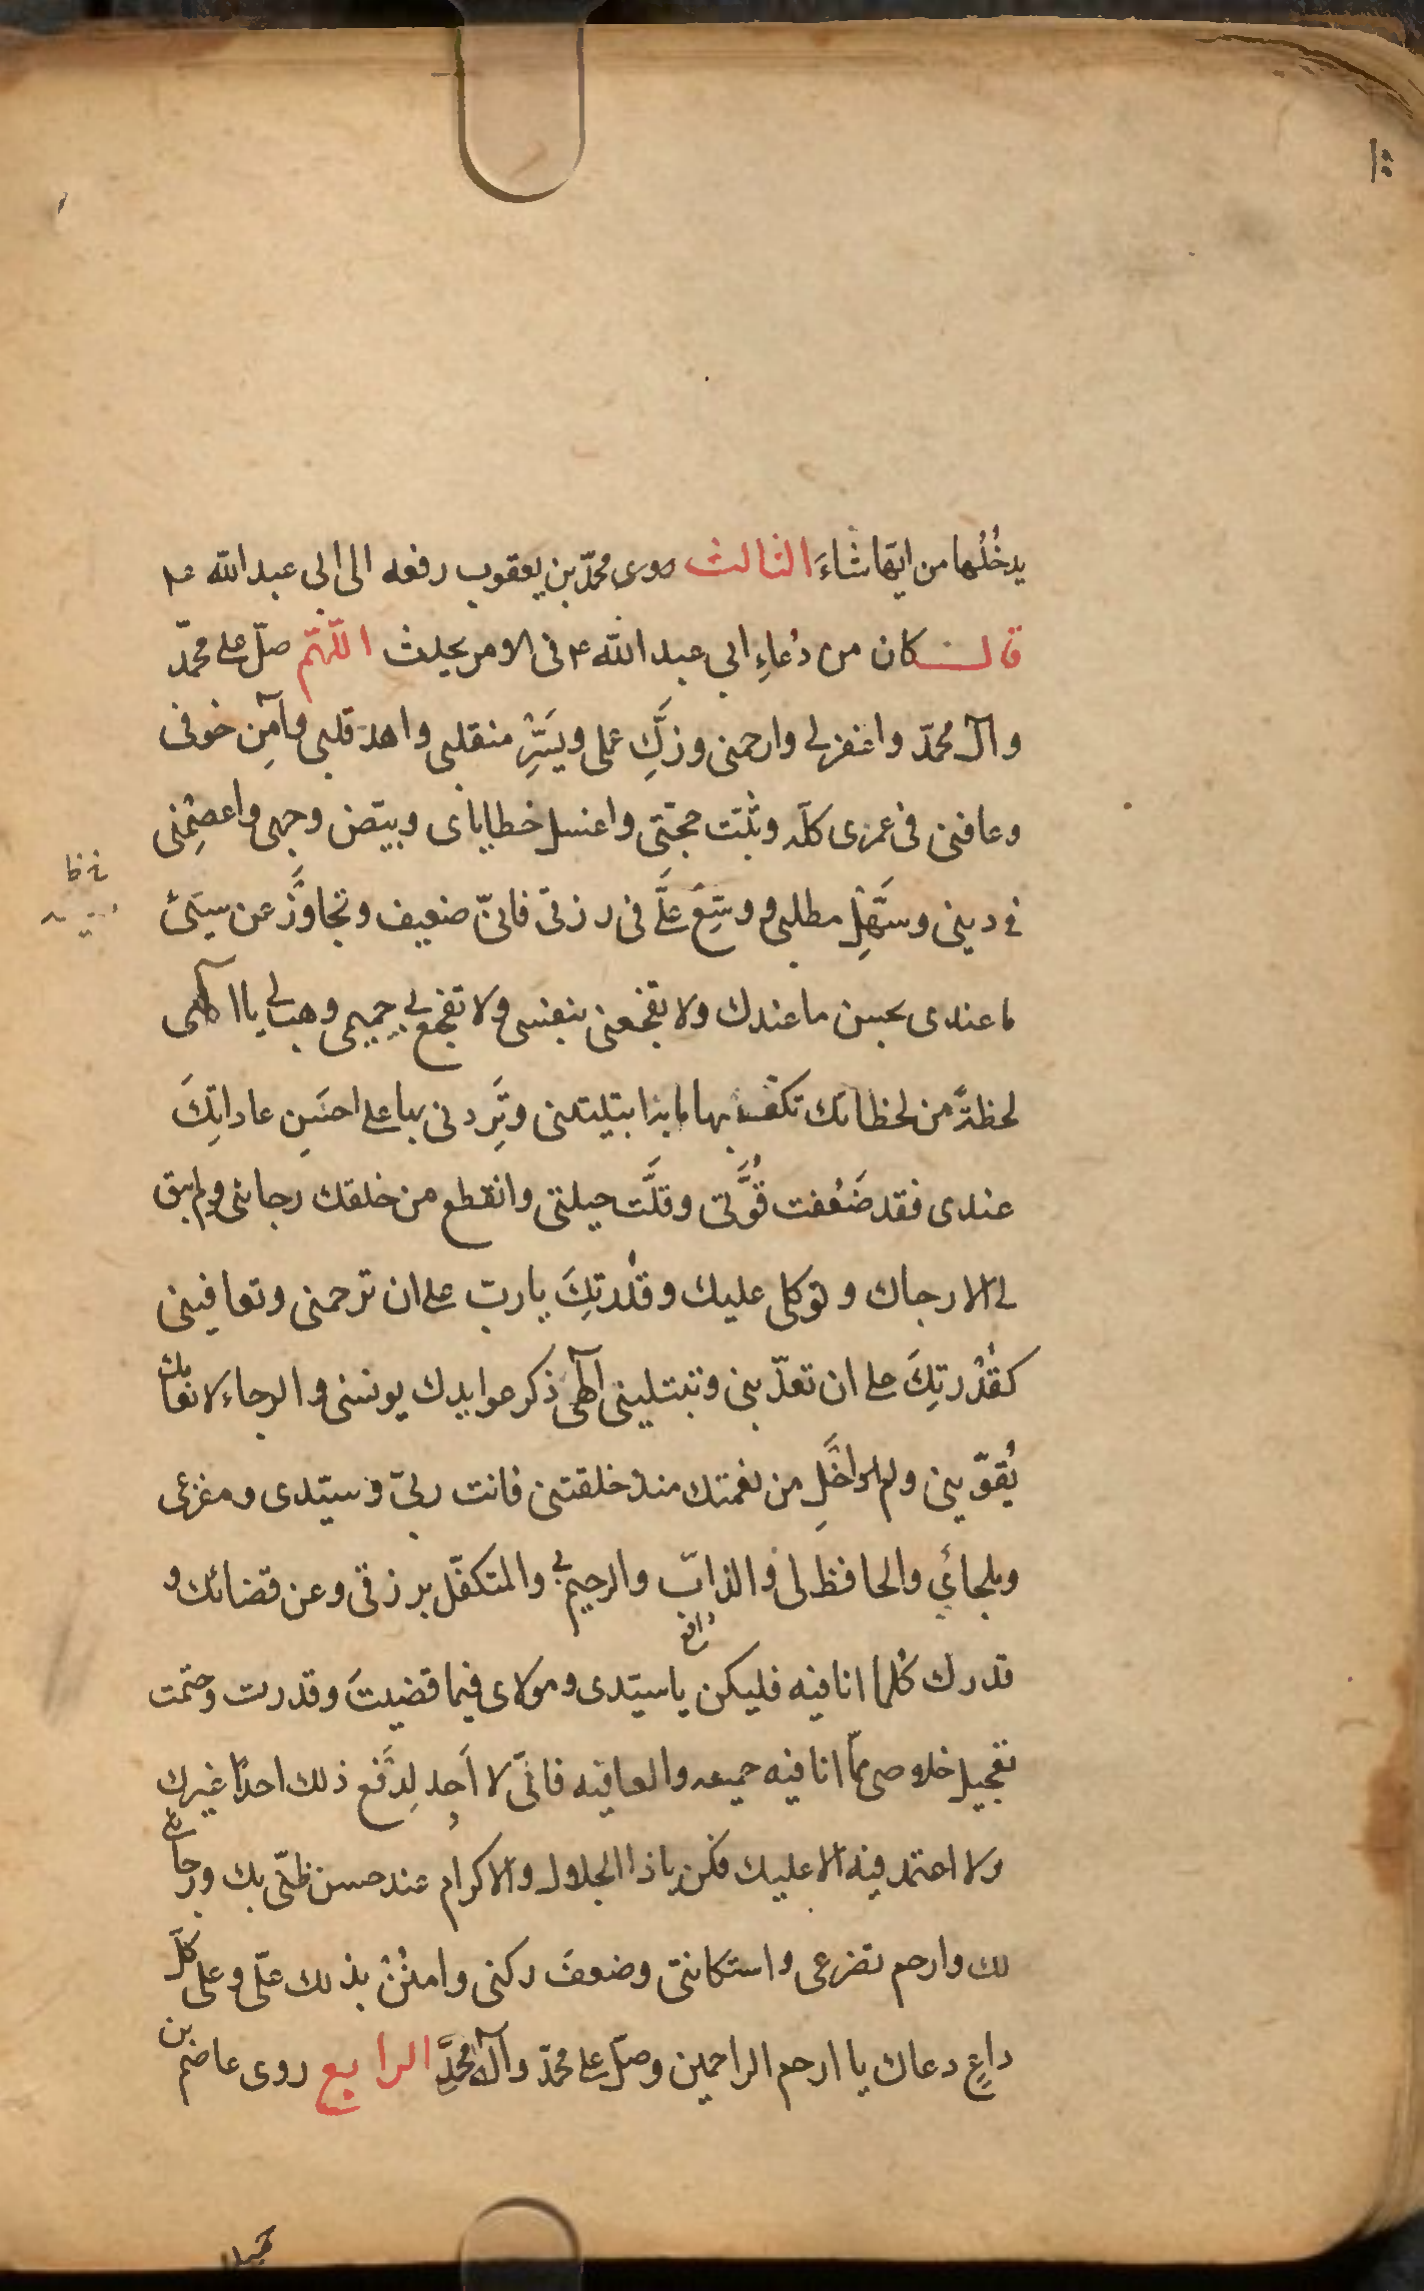 يدخُلُها من ايّها شاءَ الثالث روى محمّد بن يعقوب رفعه الى ابى عبد الله ع
قال كان من دُعاءِ ابى عبد الله ع فى الامر يحدث اللّهمّ صلّ على محمّد
وآل محمّد واغفرلى وارحمنى وزكِّ عملى ويسِّرْ منقلبى واهد قلبى وآمِن خوفى
وعافنى فى عمرى كلّه وثبّت حجّتى واغسل خطاياى وبيّض وجهى واعصِمْنى
فى دينى وسَهِّل مطلبى ووسِّعْ علَىَّ فى رزقى فانّى ضعيف وتجاوَز عن سيّئ
ما عندى بحسن ما عندك ولا تفجعنى بنفسى ولا تفجع لى حميمى وهب لى يا الٓهى
لحظةً من لحظاتك تكشف بها ما به ابتليتنى وتَرِدنى بها على احسَنِ عاداتِكَ
عندى فقد ضَعُفت قُوَّتى وقلَّت حيلتى وانقطع من خلقك رجائى ولم يبق
لى الا رجاك وتوكلى عليك وقُدرتِكَ يا ربّ على ان ترحمنى وتعافينى
كقُدْرتِكَ على ان تعذّبنى وتبتلينى الٓهى ذكر عوايدك يونسنى والرجاء لانعامك
يُقوّينى ولم اخَلِ من نعمتك منذ خلقتنى فانت ربىّ وسيّدى ومفزعى
وملجائي والحافظ لى والذابّ والرحيم بى والمتكفّل برزقى وعن قضائك و
قدرك كُلما انا فيه فليكن يا سيّدى ومولاى فيما قضيتَ وقدرت وحتمت
تعجيل خلاصى ممّا انا فيه جميعه والعافيه فانّى لا اَجد لِدَفع ذلك احدًا غيرك
ولا اعتمد فيه الا عليك فكن يا ذا الجلال والاكرام عند حسن ظنّى بك ورجائى
لك وارحم تضرعى واستكانتى وضعفَ ركنى وامنُنْ بذلك علىّ وعلى كلّ
داعٍ دعاك يا ارحم الراحمين وصلّ على محمّد وآله محمّدٍ الرابع روى عاصم بن